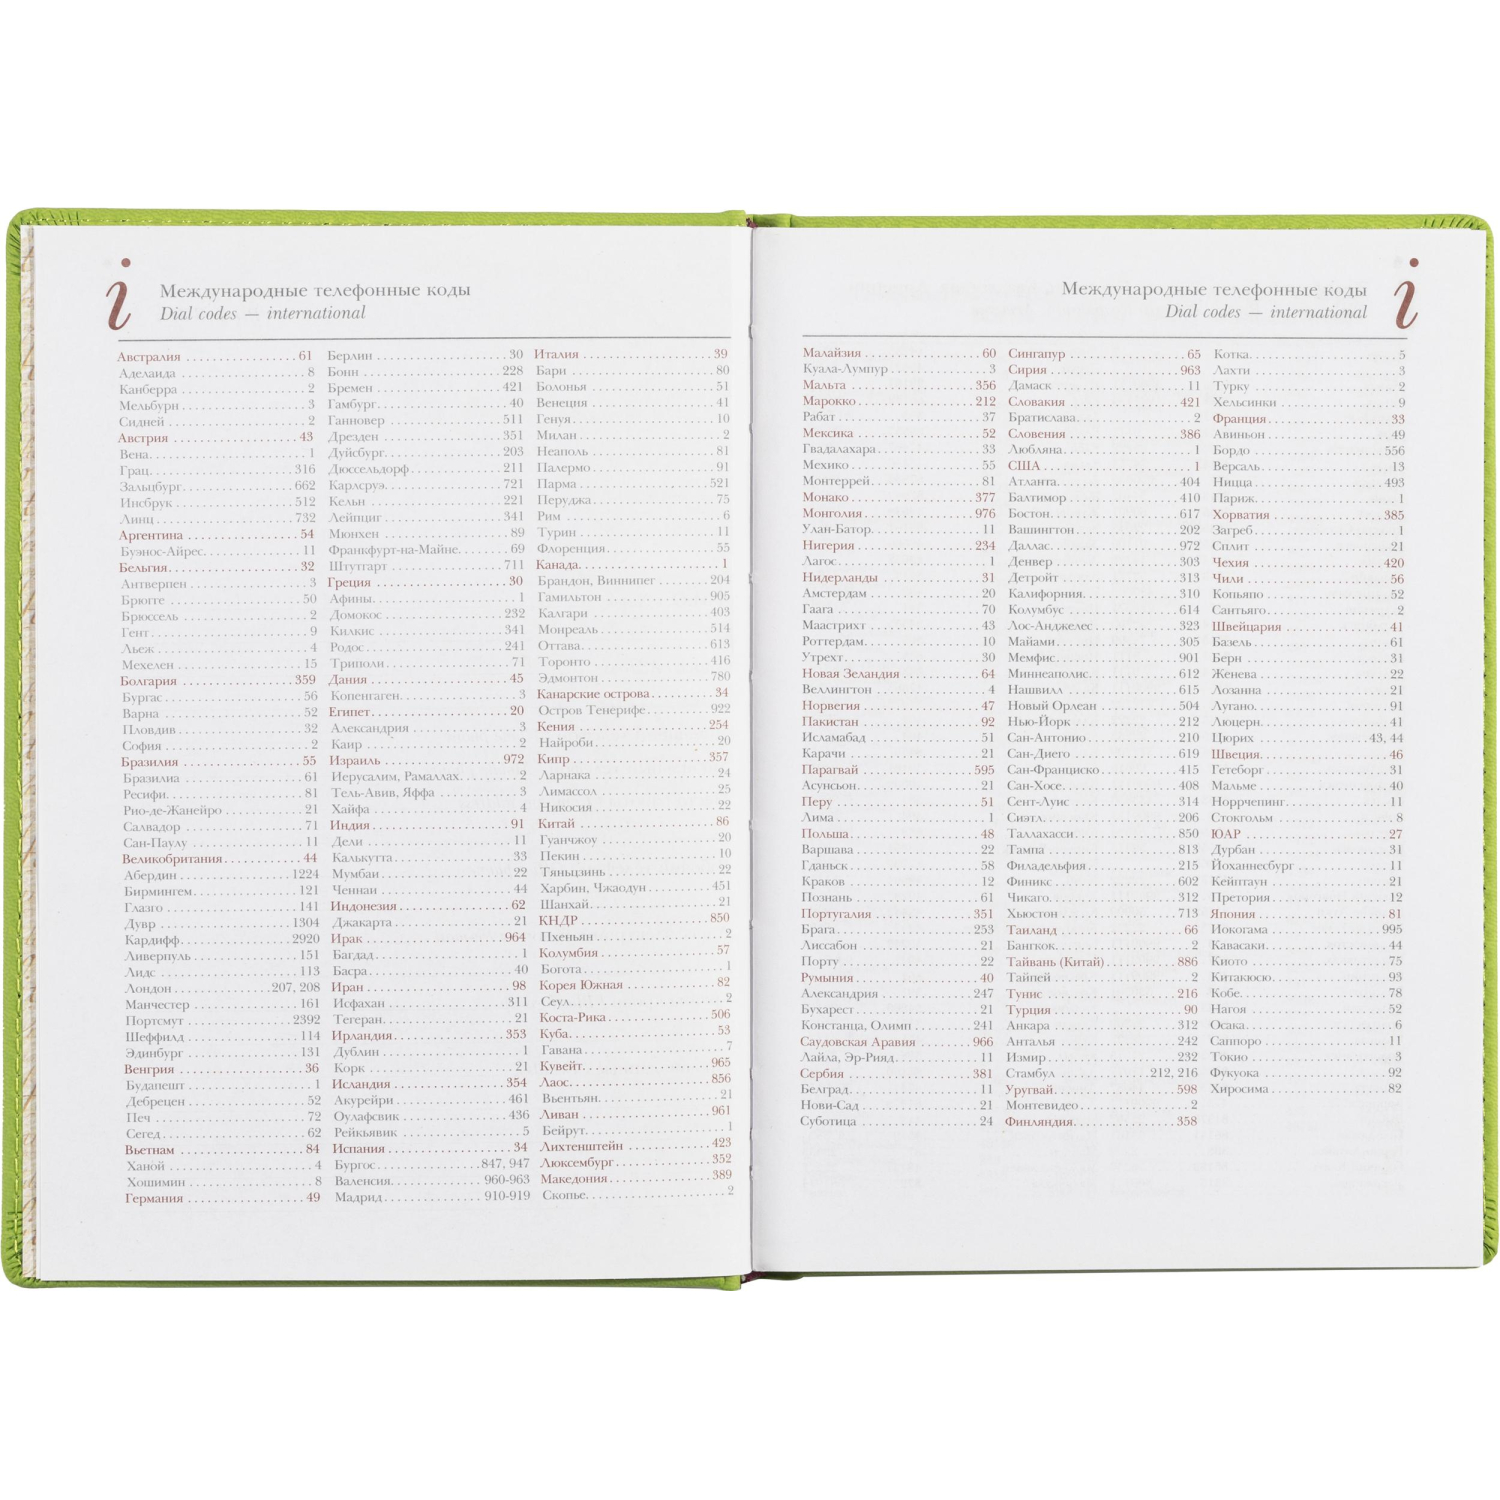 i
Международные телефонные коды
Dial codes — international
Австралия 61
Аделаида 8
Канберра 2
Мельбурн 3
Сидней 2
Австрия 43
Вена 1
Грац 316
Зальцбург 662
Инсбрук 512
Линц 732
Аргентина 54
Буэнос-Айрес 11
Бельгия 32
Антверпен 3
Брюгге 50
Брюссель 2
Гент 9
Льеж 4
Мехелен 15
Болгария 359
Бургас 56
Варна 52
Пловдив 32
София 2
Бразилия 55
Бразилиа 61
Ресифи 81
Рио-де-Жанейро 21
Салвадор 71
Сан-Паулу 11
Великобритания 44
Абердин 1224
Бирмингем 121
Глазго 141
Дувр 1304
Кардифф 2920
Ливерпуль 151
Лидс 113
Лондон 207, 208
Манчестер 161
Портсмут 2392
Шеффилд 114
Эдинбург 131
Венгрия 36
Будапешт 1
Дебрецен 52
Печ 72
Сегед 62
Вьетнам 84
Ханой 4
Хошимин 8
Германия 49
Берлин 30
Бонн 228
Бремен 421
Гамбург 40
Ганновер 511
Дрезден 351
Дуйсбург 203
Дюссельдорф 211
Карлсруэ 721
Кельн 221
Лейпциг 341
Мюнхен 89
Франкфурт-на-Майне 69
Штутгарт 711
Греция 30
Афины 1
Домокос 232
Килкис 341
Родос 241
Триполи 71
Дания 45
Копенгаген 3
Египет 20
Александрия 3
Каир 2
Израиль 972
Иерусалим, Рамаллах 2
Тель-Авив, Яффа 3
Хайфа 4
Индия 91
Дели 11
Калькутта 33
Мумбаи 22
Ченнаи 44
Индонезия 62
Джакарта 21
Ирак 964
Багдад 1
Басра 40
Иран 98
Исфахан 311
Тегеран 21
Ирландия 353
Дублин 1
Корк 21
Исландия 354
Акурейри 461
Оулафсвик 436
Рейкьявик 5
Испания 34
Бургос 847, 947
Валенсия 960-963
Мадрид 910-919
Италия 39
Бари 80
Болонья 51
Венеция 41
Генуя 10
Милан 2
Неаполь 81
Палермо 91
Парма 521
Перуджа 75
Рим 6
Турин 11
Флоренция 55
Канада 1
Брандон, Виннипег 204
Гамильтон 905
Калгари 403
Монреаль 514
Оттава 613
Торонто 416
Эдмонтон 780
Канарские острова 34
Остров Тенерифе 922
Кения 254
Найроби 20
Кипр 357
Ларнака 24
Лимассол 25
Никосия 22
Китай 86
Гуанчжоу 20
Пекин 10
Тяньцзинь 22
Харбин, Чжаодун 451
Шанхай 21
КНДР 850
Пхеньян 2
Колумбия 57
Богота 1
Корея Южная 82
Сеул 2
Коста-Рика 506
Куба 53
Гавана 7
Кувейт 965
Лаос 856
Вьентьян 21
Ливан 961
Бейрут 1
Лихтенштейн 423
Люксембург 352
Македония 389
Скопье 2
Международные телефонные коды
Dial codes — international
i
Малайзия 60
Куала-Лумпур 3
Мальта 356
Марокко 212
Рабат 37
Мексика 52
Гвадалахара 33
Мехико 55
Монтеррей 81
Монако 377
Монголия 976
Улан-Батор 11
Нигерия 234
Лагос 1
Нидерланды 31
Амстердам 20
Гаага 70
Маастрихт 43
Роттердам 10
Утрехт 30
Новая Зеландия 64
Веллингтон 4
Норвегия 47
Пакистан 92
Исламабад 51
Карачи 21
Парагвай 595
Асунсьон 21
Перу 51
Лима 1
Польша 48
Варшава 22
Гданьск 58
Краков 12
Познань 61
Португалия 351
Брага 253
Лиссабон 21
Порту 22
Румыния 40
Александрия 247
Бухарест 21
Констанца, Олимп 241
Саудовская Аравия 966
Лайла, Эр-Рияд 11
Сербия 381
Белград 11
Нови-Сад 21
Суботица 24
Сингапур 65
Сирия 963
Дамаск 11
Словакия 421
Братислава 2
Словения 386
Любляна 1
США 1
Атланта 404
Балтимор 410
Бостон 617
Вашингтон 202
Даллас 972
Денвер 303
Детройт 313
Калифорния 310
Колумбус 614
Лос-Анджелес 323
Майами 305
Мемфис 901
Миннеаполис 612
Нашвилл 615
Новый Орлеан 504
Нью-Йорк 212
Сан-Антонио 210
Сан-Диего 619
Сан-Франциско 415
Сан-Хосе 408
Сент-Луис 314
Сиэтл 206
Таллахасси 850
Тампа 813
Филадельфия 215
Финикс 602
Чикаго 312
Хьюстон 713
Таиланд 66
Бангкок 2
Тайвань (Китай) 886
Тайпей 2
Тунис 216
Турция 90
Анкара 312
Анталья 242
Измир 232
Стамбул 212, 216
Уругвай 598
Монтевидео 2
Финляндия 358
Котка 5
Лахти 3
Турку 2
Хельсинки 9
Франция 33
Авиньон 49
Бордо 556
Версаль 13
Ницца 493
Париж 1
Хорватия 385
Загреб 1
Сплит 21
Чехия 420
Чили 56
Копьяпо 52
Сантьяго 2
Швейцария 41
Базель 61
Берн 31
Женева 22
Лозанна 21
Лугано 91
Люцерн 41
Цюрих 43, 44
Швеция 46
Гетеборг 31
Мальме 40
Норрчепинг 11
Стокгольм 8
ЮАР 27
Дурбан 31
Йоханнесбург 11
Кейптаун 21
Претория 12
Япония 81
Иокогама 995
Кавасаки 44
Киото 75
Китакюсю 93
Кобе 78
Нагоя 52
Осака 6
Саппоро 11
Токио 3
Фукуока 92
Хиросима 82